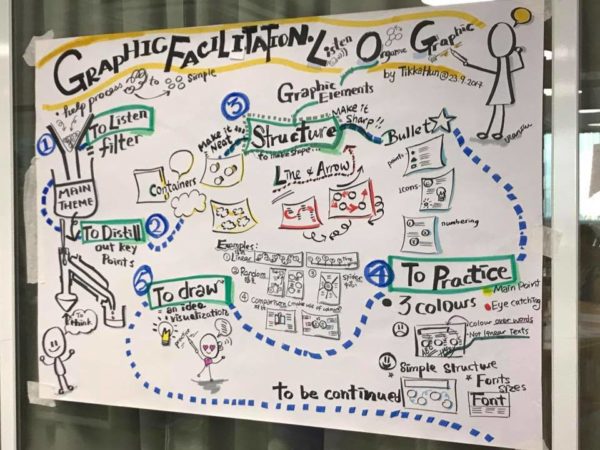 GRAPHIC FACILITATION.
Listen Organise Graphic
by TikkaHun@23.9.2017
+ help process
to simple
1
To Listen
= filter
MAIN THEME
2
To Distill
out key
Points
To think
3
Graphic
ELEMENTS
Structure
to make shape...
Make it Neat
MAKE it
SHARP!!
Containers
Line & Arrow
Bullet
points
icons
numbering
Examples:
① Linear
② Random
③
④ Comparison (make use of columns)
4
To Practice
3 colours
Main Point
Eye catching
Colour over words
Not linear texts
Simple Structure
* Fonts
sizes
Font
5
To draw
an idea
visualization
to be continued